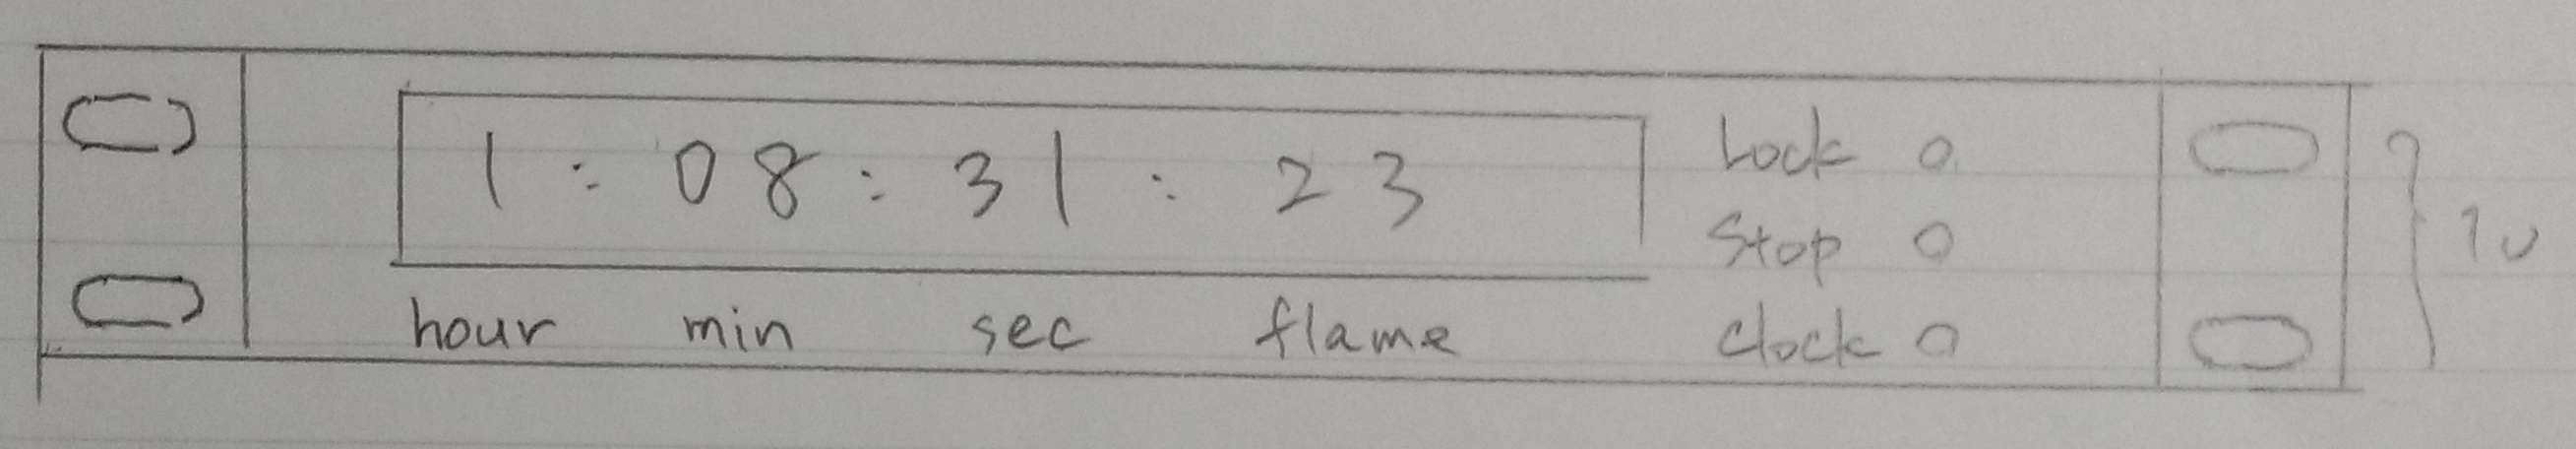 1 : 08 : 31 : 23
hour min sec flame
Lock
Stop
clock
1U